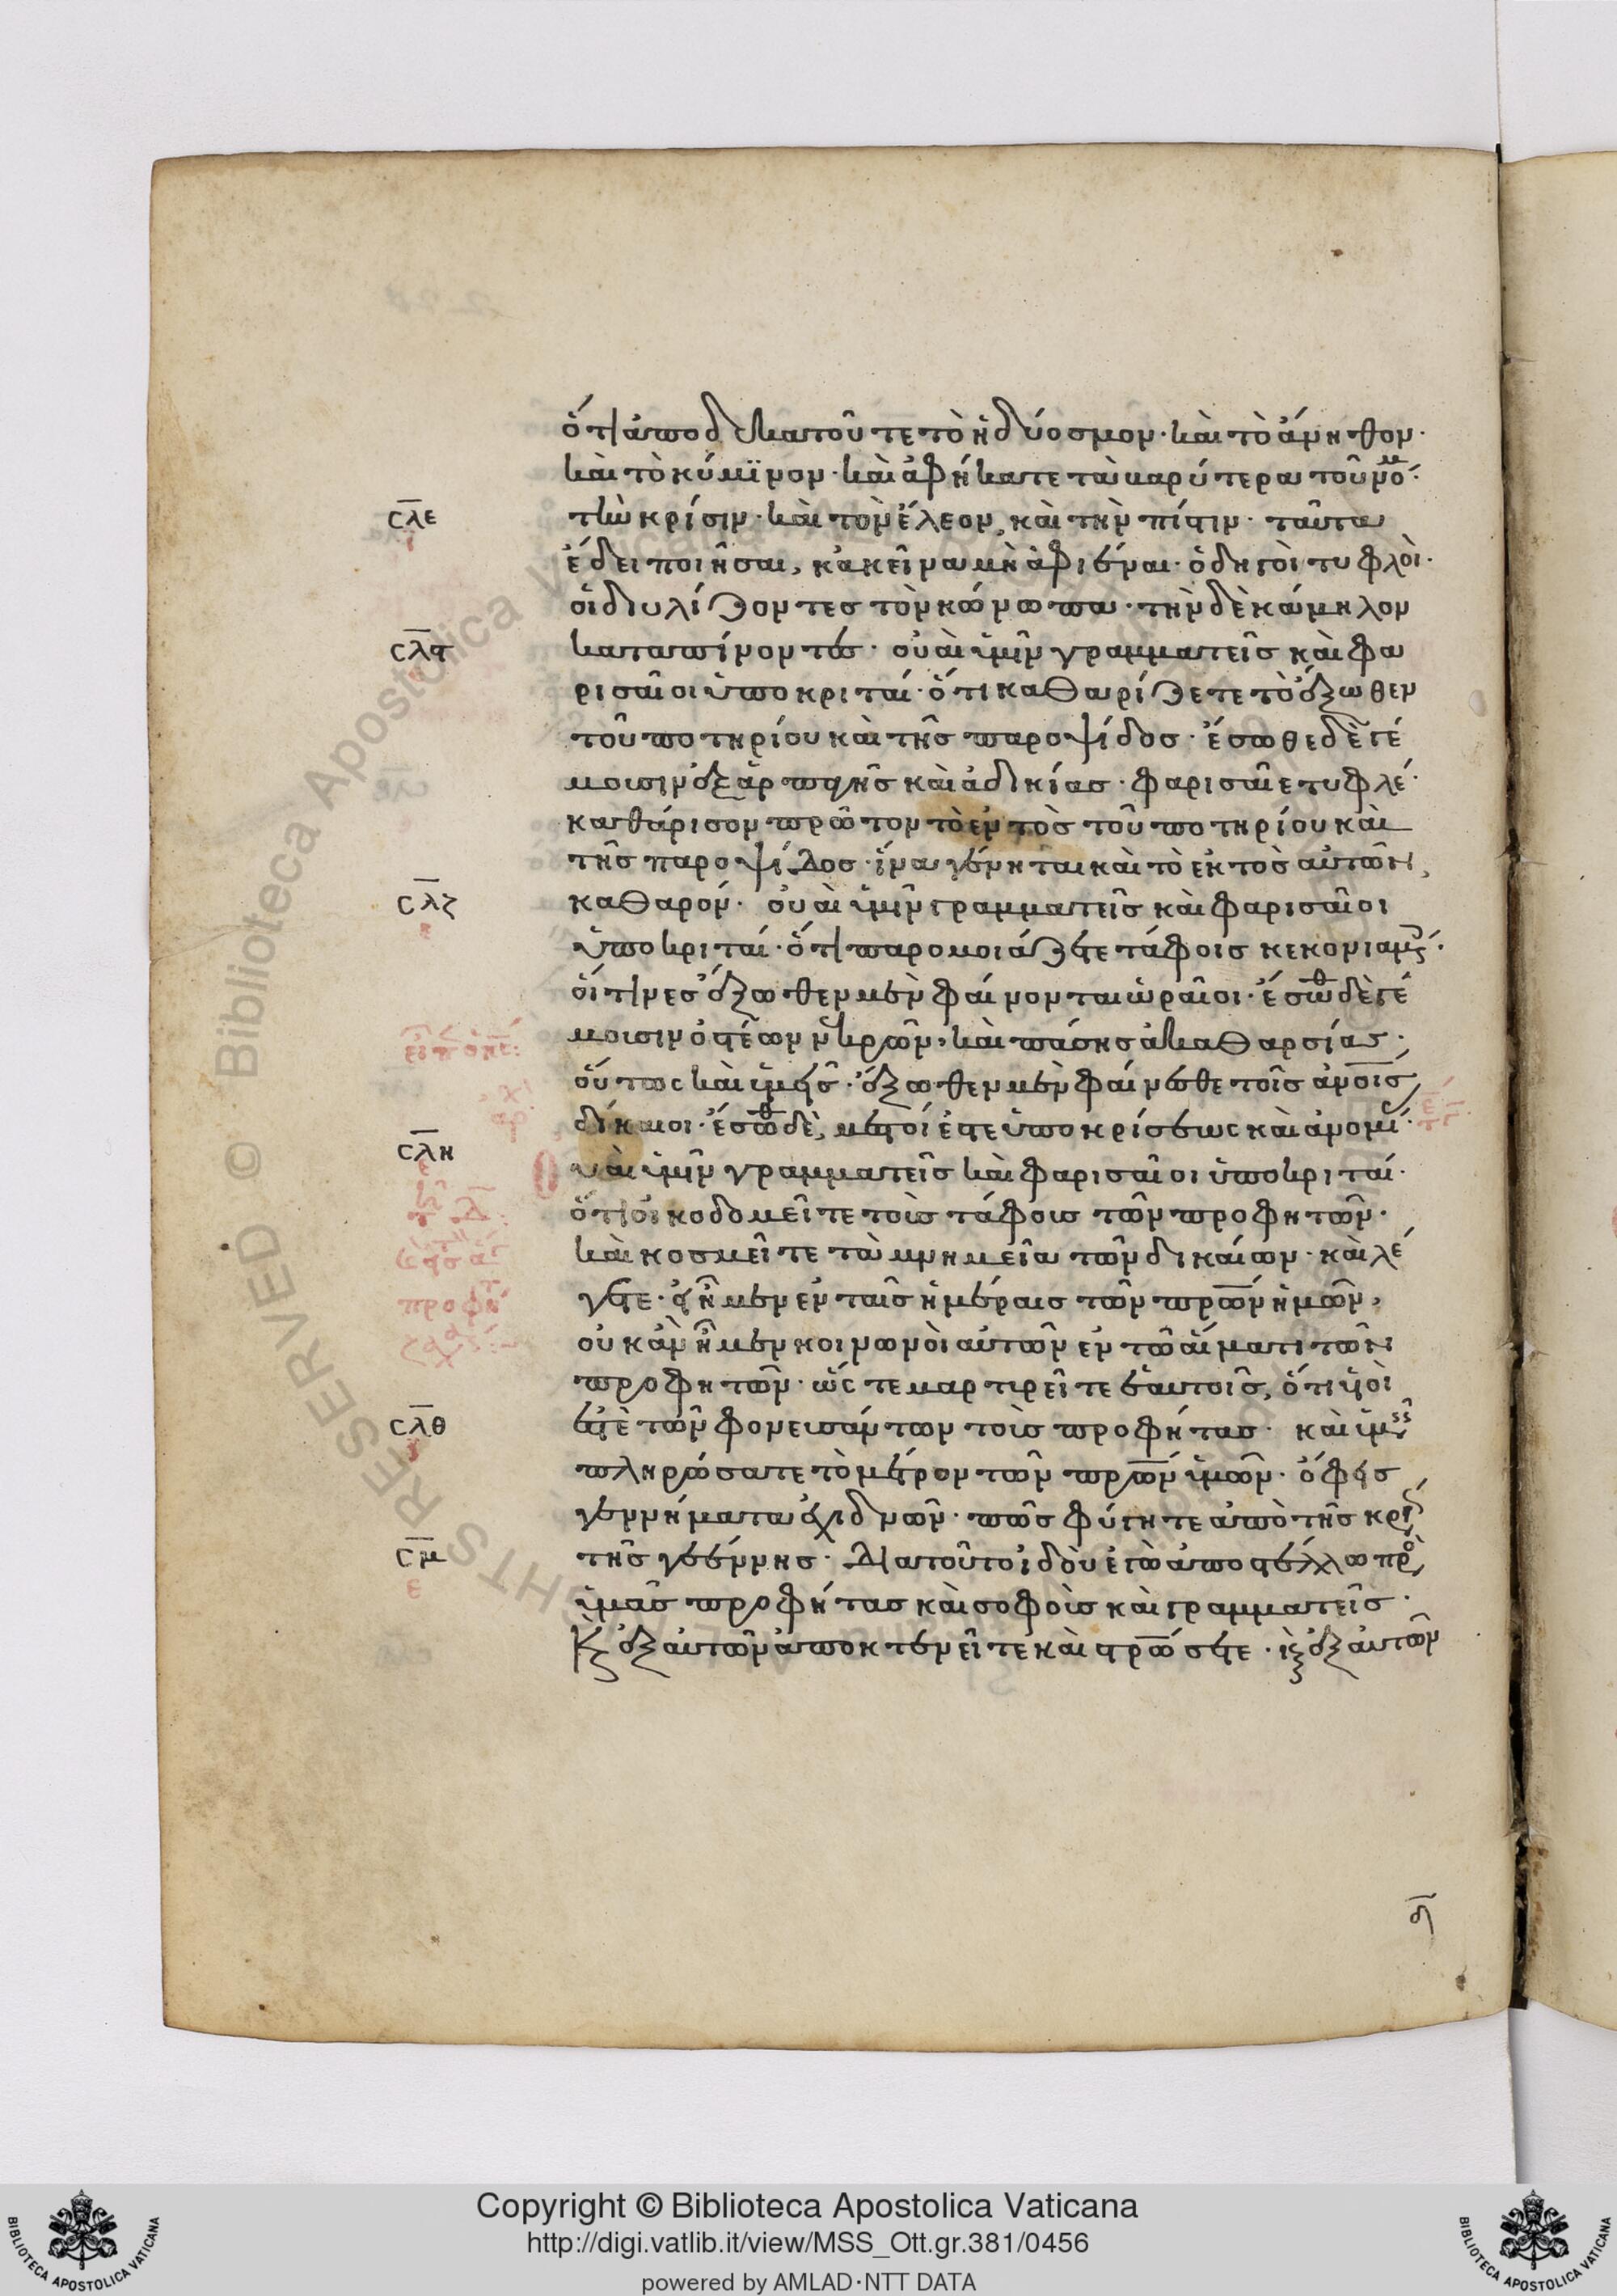 ὅτι ἀποδεκατοῦτε τὸ ἡδύοσμον· καὶ τὸ ἄνηθον·
καὶ τὸ κύμϊνον· καὶ ἀφήκατε τὰ βαρύτερα τοῦ νό̅μ·
σλε τὴν κρίσιν· καὶ τὸν ἔλεον, καὶ τὴν πίστιν· ταῦτα
ἔδει ποιῆσαι, κἀκεῖνα μὴ ἀφιέναι· ὁδηγοὶ τυφλοὶ·
οἱ διυλίζοντες τὸν κώνωπα· τὴν δὲ κάμηλον
σλϛ καταπίνοντες· οὐαὶ ὑμῖν γραμματεῖς καὶ φα
ρισαῖοι ὑποκριταί· ὅτι καθαρίζετε τὸ ἔξωθεν
τοῦ ποτηρίου καὶ τῆς παροψίδος· ἔσωθε δὲ γέ
μουσιν ἐξ ἁρπαγῆς καὶ ἀδικίας· φαρισαῖε τυφλέ·
καθάρισον πρῶτον τὸ ἐντὸς τοῦ ποτηρίου καὶ
τῆς παροψίδος· ἵνα γένηται καὶ τὸ ἐκτὸς αὐτῶν,
σλζ καθαρόν· οὐαὶ ὑμῖν γραμματεῖς καὶ φαρισαῖοι
ὑποκριταί· ὅτι παρομοιάζετε τάφοις κεκονιαμς·
οἵτινες ἔξωθεν μὲν φαίνονται ὡραῖοι· ἔσωθ δὲ γέ
μουσιν ὀστέων νεκρῶν, καὶ πάσης ἀκαθαρσίας·
οὕτως καὶ ὑμεῖς· ἔξωθεν μὲν φαίνεσθε τοῖς ἀν̅ο̅ι̅ς̅
δίκαιοι· ἔσωθ δὲ, μεστοί ἐστε ὑποκρίσεως καὶ ἀνομί·
σλη Οὐαὶ ὑμῖν γραμματεῖς καὶ φαρισαῖοι ὑποκριταί·
ὅτι οἰκοδομεῖτε τοὺς τάφους τῶν προφητῶν·
καὶ κοσμεῖτε τὰ μνημεῖα τῶν δικαίων· καὶ λέ
γετε· εἰ ἦμεν ἐν ταῖς ἡμέραις τῶν πρ̅ω̅ν ἡμῶν,
οὐκ ἂν ἦμεν κοινωνοὶ αὐτῶν ἐν τῶ αἵματι τῶν
προφητῶν· ὥστε μαρτυρεῖτε ἑαυτοῖς, ὅτι υἱοὶ
σλθ ἐστὲ τῶν φονευσάντων τοὺς προφήτας· καὶ ὑμς
πληρώσατε τὸ μέτρον τῶν πρ̅ω̅ν ὑμῶν· ὄφεις
γεννήματα ἐχιδνῶν· πῶς φύγητε ἀπὸ τῆς κρι
σμ τῆς γεέννης· Διατοῦτο ἰδοὺ ἐγὼ ἀποστέλλω πρὸ
ὑμᾶς προφήτας καὶ σοφοὺς καὶ γραμματεῖς·
καὶ ἐξ αὐτῶν ἀποκτενεῖτε καὶ στρ̅ώσετε· καὶ ἐξ αὐτῶν
Copyright © Biblioteca Apostolica Vaticana
http://digi.vatlib.it/view/MSS_Ott.gr.381/0456
powered by AMLAD·NTT DATA